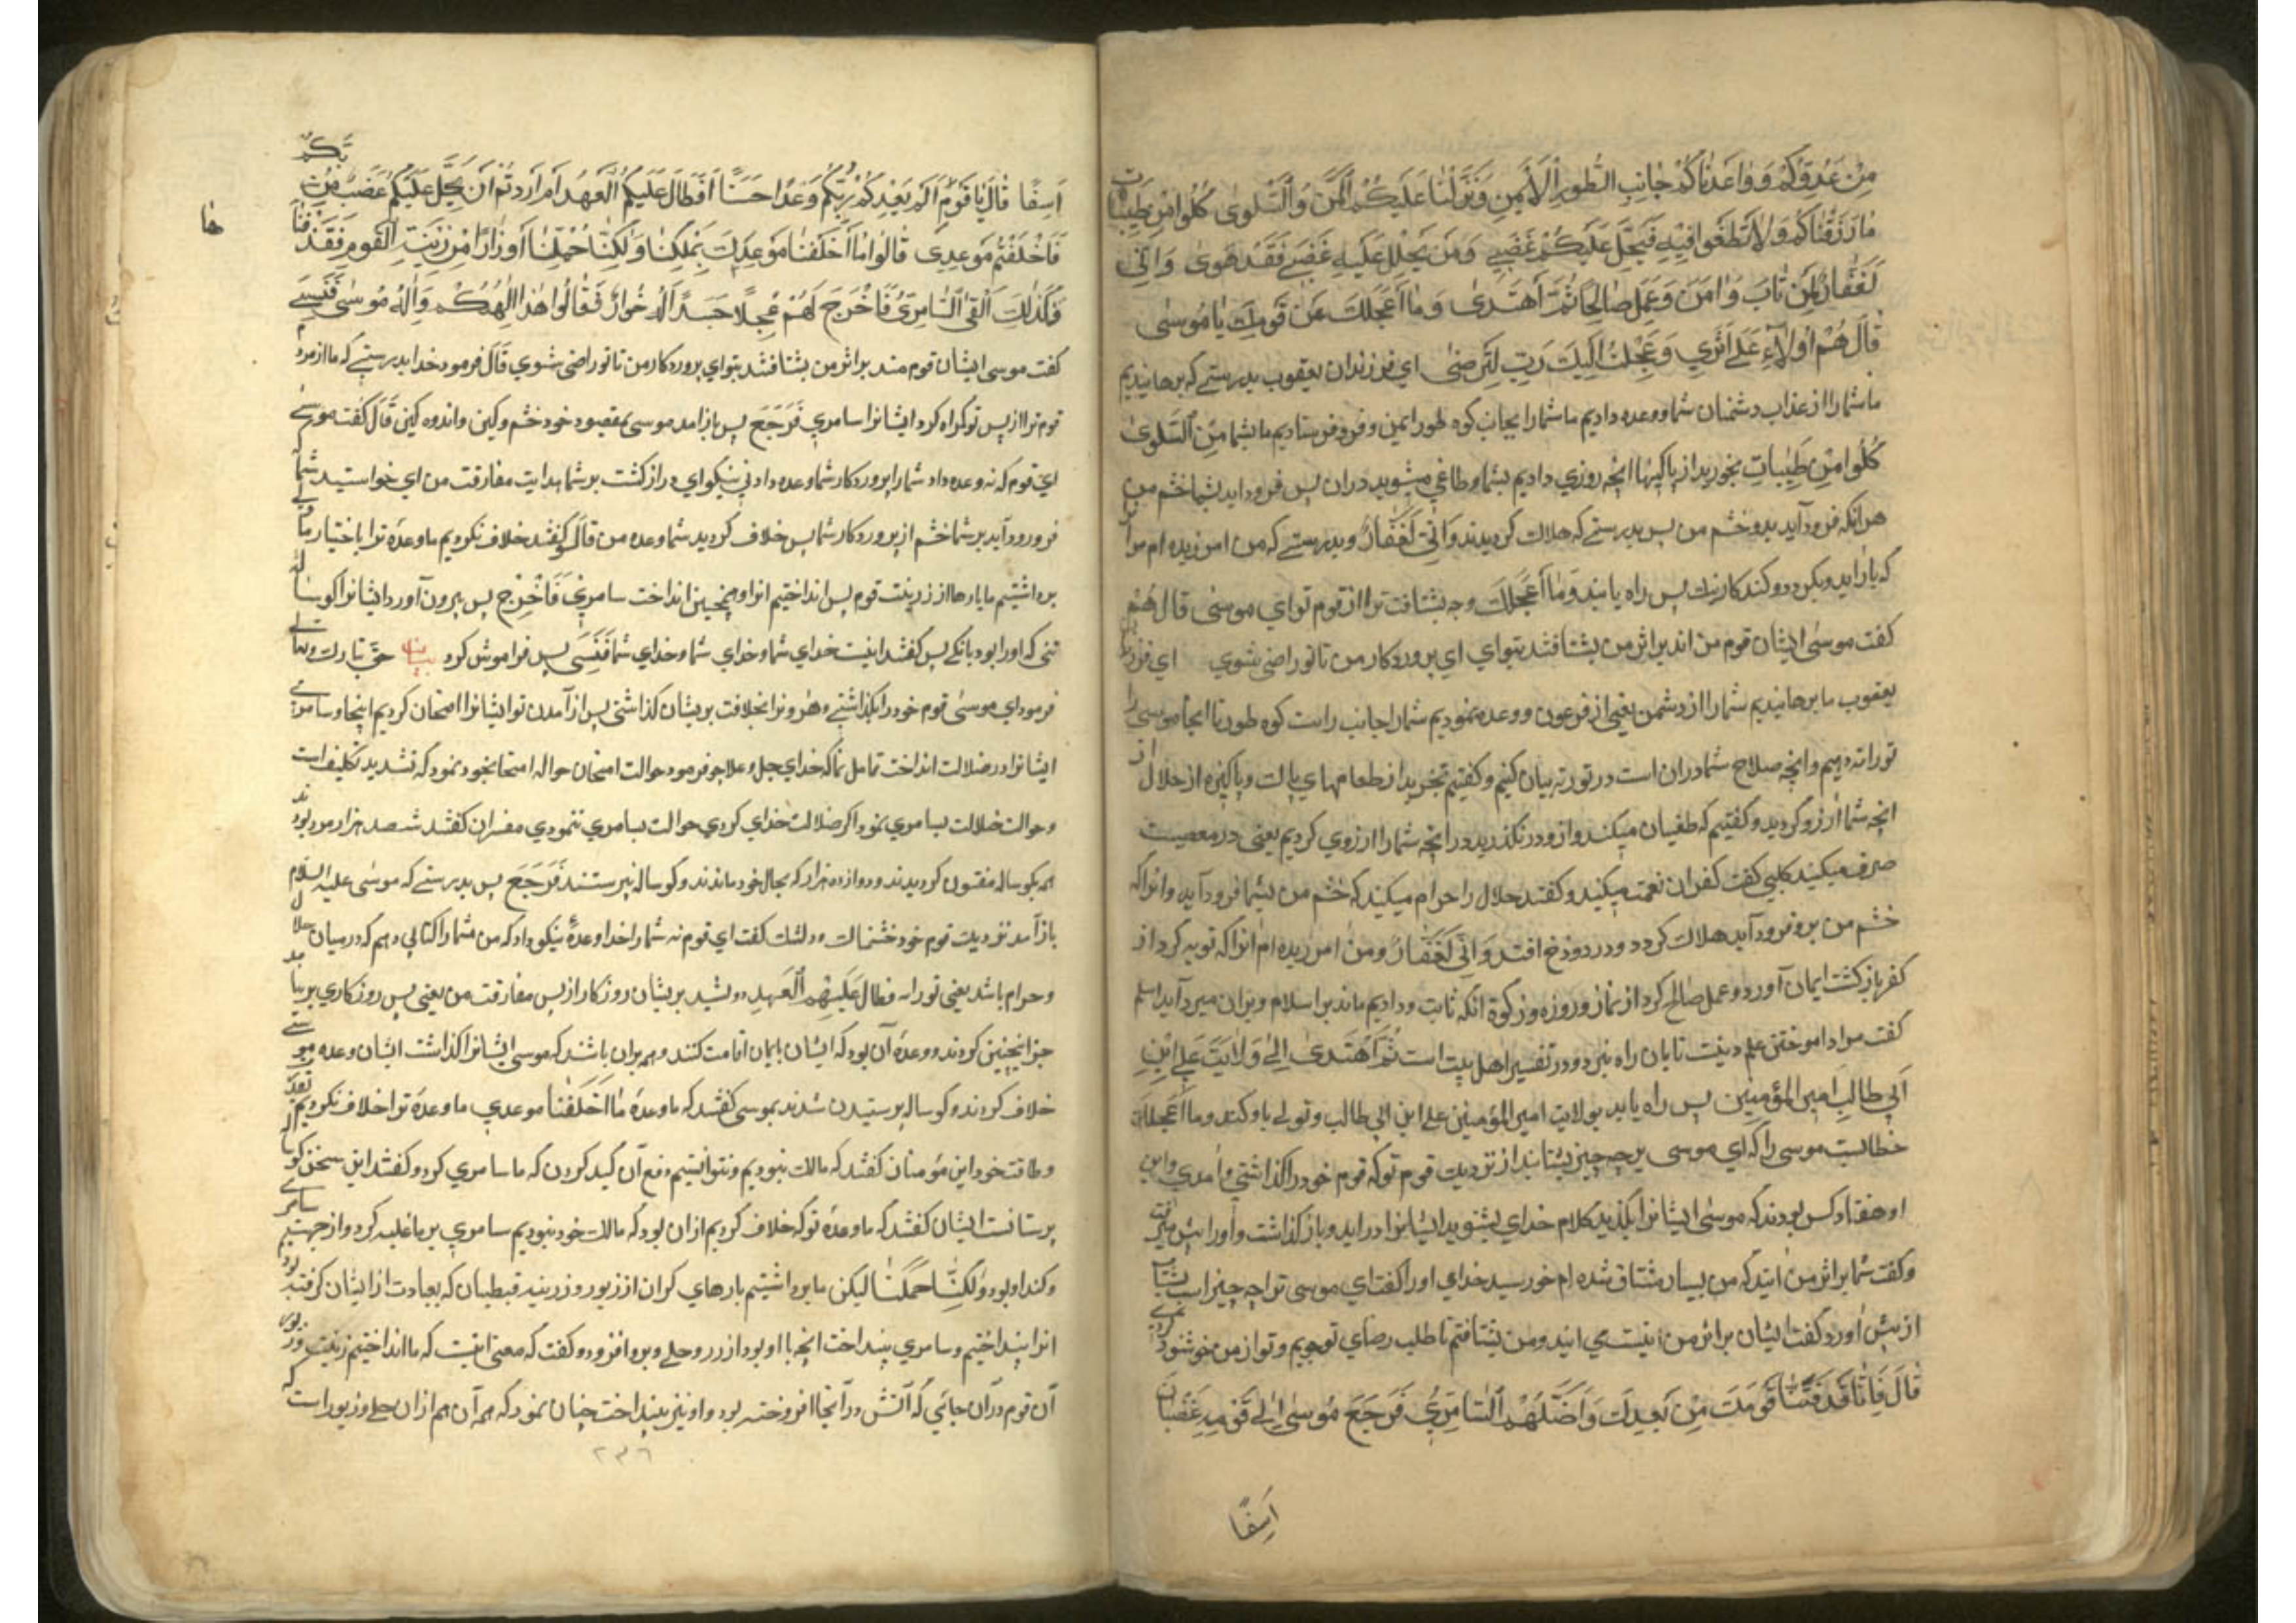 مِنْ عَدُوِّكُمْ وَوَاعَدْنَاكُمْ جَانِبَ الطُّورِ الْأَيْمَنِ وَنَزَّلْنَا عَلَيْكُمُ الْمَنَّ وَالسَّلْوى كُلُوا مِنْ طَيِّبَاتِ
مَا رَزَقْنَاكُمْ وَلَا تَطْغَوْا فِيهِ فَيَحِلَّ عَلَيْكُمْ غَضَبِي وَمَنْ يَحْلِلْ عَلَيْهِ غَضَبِي فَقَدْ هَوى وَاِنِّي
لَغَفَّارٌ لِمَنْ تَابَ وَامَنَ وَعَمِلَ صَالِحًا ثُمَّ اهْتَدى وَمَا أَعْجَلَكَ عَنْ قَوْمِكَ يَا مُوسى
قَالَ هُمْ أُولَاءِ عَلى أَثَرِي وَعَجِلْتُ اِلَيْكَ رَبِّ لِتَرْضى اي فرزندان يعقوب بدرستي كه برهانيديم
ما شما را از عذاب دشمنان شما ووعده داديم ما شما را بجانب كوه طور ايمن وفرو فرستاديم ما بشما مَنَّ السَّلْوى
كُلُوا مِنْ طَيِّبَاتِ بخوريد از پاكيها انچه روزي داديم بشما وطاغي ميشويد دران پس فرود ايد بشما خشم من
هر انكه فرود آيد بدو خشم من پس بدرستي كه هلاك كرديدند وَاِنِّي لَغَفَّارٌ وبدرستي كه من امرزيده ام مر
كه باز ايد وبكرود وكند كار نيك پس راه يابند وَمَا أَعْجَلَكَ وچه بشتافت ترا از قوم تو اي موسى قال هُمْ
كفت موسى ايشان قوم من اند بر اثر من بشتافتند بتو اي اي پروردكار من تا تو راضي شوي اي فرزندان
يعقوب ما برهانيديم شما را از دشمن يعني از فرعون ووعده نموديم شما را جانب راست كوه طور تا انجا موسى را
توراته دهيم وانچه صلاح شما دران است در تورته بيان كنيم وكفتيم بخوريد از طعامهاي پاك وپاكيزه از حلال از
انچه شما آرزو كرديد وكفتيم كه طغيان ميكند واز ودر نكذريد در انچه شما را ارزوي كرديم يعني در معصيت
صرف ميكنيد كلبي كفت كفران نعمت ميكنيد وكفتند حلال را حرام ميكنيد كه خشم من بشما فرود آيد وانرا كه
خشم من برو فرود آيد هلاك كردد ودر دوزخ افتد وَاِنِّي لَغَفَّارٌ ومن امرزيده ام انرا كه توبه كرد از
كفر بازكشت ايمان آورد وعمل صالح كرد از نماز وروزه وزكوة انكه ثابت وداديم ماند بر اسلام وبران ميرد آيد اسلم
كفت مراد اموختن علم دينت تا بان راه برد ودر تفسير اهل بيت است ثُمَّ اهْتَدى اِلى وَلَايَتِ عَلِي ابْنِ
اَبِي طالب امير المؤمنين پس راه يابد بولايت امير المؤمنين علي ابن ابي طالب وتولى باو كند وما أَعْجَلَكَ
خطابست موسى را كه اي موسى بر چه چيز بشتابند از نزديك قوم تو كه قوم خود را كذاشتي وآمدي واين
او هفتاد كس بودند كه موسى ايشانرا بكذيد كلام خداي بشنويد ايشانرا در ايد وباز كذاشت واورا پيش
وكفت شما بر اثر من ايند كه من بسيار مشتاق شده ام خور سيد خداي اورا كفت اي موسى ترا چه چيز است بشتاب
از پيش آورد كفت ايشان بر اثر من ايند ومن بشتافتم تا طلب رضاي تو جويم وتو از من خوشنود كردي
قَالَ فَاِنَّا قَدْ فَتَنَّا قَوْمَكَ مِنْ بَعْدِكَ وَاَضَلَّهُمُ السَّامِرِيُّ فَرَجَعَ مُوسى اِلى قَوْمِهِ غَضْبَانَ
اَسِفًا
اَسِفًا قَالَ يَا قَوْمِ اَلَمْ يَعِدْكُمْ رَبُّكُمْ وَعْدًا حَسَنًا اَفَطَالَ عَلَيْكُمُ الْعَهْدُ اَمْ اَرَدْتُمْ اَنْ يَحِلَّ عَلَيْكُمْ غَضَبٌ مِنْ رَبِّكُمْ
فَاَخْلَفْتُمْ مَوْعِدِي قَالُوا مَا اَخْلَفْنَا مَوْعِدَكَ بِمَلْكِنَا وَلكِنَّا حُمِّلْنَا اَوْزَارًا مِنْ زِينَتِ الْقَوْمِ فَقَذَفْنَا
ها
فَكَذلِكَ اَلْقَى السَّامِرِيُّ فَاَخْرَجَ لَهُمْ عِجْلًا جَسَدًا لَهُ خُوَارٌ فَقَالُوا هذَا اِلهُكُمْ وَاِلهُ مُوسى فَنَسِيَ
كفت موسى ايشان قوم منند بر اثر من بشتافتند بتو اي پروردكار من تا تو راضي شوي قَالَ فرمود خدا بدرستي كه ما ازموديم
قوم ترا از پس تو كمراه كرد ايشانرا سامري فَرَجَعَ پس باز امد موسى بمقصود خود خشم وكين واندوه كين قَالَ كفت موسى
اي قوم كه نه وعده داد شما را پروردكار شما وعده دادني نيكو اي دراز كشت بر شما بدايت مفارقت من اي خواستيد شما
فرود آيد بر شما خشم از پروردكار شما پس خلاف كرديد شما وعده من قالو كفتند خلاف نكرديم ما وعدهٔ ترا باختيار ما
برداشتيم ما بارها از زينت قوم پس انداختيم انرا وهمچنين انداخت سامري فَاَخْرَجَ پس بيرون آورد ايشانرا كوساله
تني كه اورا بود بانكي پس كفتند اينست خداي شما وخداي شما وخداي شما فَنَسِيَ پس فراموش كرد بيان حق تبارك وتعالى
فرمود اي موسى قوم خود را بكذاشتي وهارونرا بخلافت بريشان كذاشتي پس از آمدن تو ايشانرا امتحان كرديم اينجا وسامري
ايشانرا در ضلالت انداخت تامل نما كه خداي جل وعلا چو فرمود حوالت امتحان حواله امتحا بخود نمود كه تشديد تكليف است
وحوالت ضلالت بسامري نمود اكر ضلالت خداي كردي حوالت بسامري ننمودي مفسران كفتند ششصد هزار مرد بودند
همه بكوساله مفتون كرديدند ودوازده هزار كه بحال خود ماندند وكوساله نپرستند فَرَجَعَ پس بدرستي كه موسى عليه السلام
باز آمد نزديك قوم خود خشمناك ودلتنك كفت اي قوم نه شما را خدا وعدهٔ نيكو داد كه من شما را كتابي دهم كه درميان حلال
وحرام باشد يعني توراه فطال عَلَيْهِم الْعَهْدِ بريشان روزكار از پس مفارقت من يعني پس روزكاري بر
چيز اينچنين كردند ووعدهٔ آن بود كه ايشان بايمان اقامت كنند وهم بران باشند كه موسى ايشانرا كذاشت ايشان وعده موسى
خلاف كردند وكوساله پرستيدن شدند بموسى كفتند كه ما وعده مَا اَخْلَفْنَا موعدي ما وعدهٔ ترا خلاف نكرديم بقدرت
وطاقت خود اين مؤمنان كفتند كه مالك نبوديم ونتوانستيم دفع آن كيد كردن كه ما سامري كرد وكفتند اين سخن كوساله
پرستانست ايشان كفتند كه ما وعدهٔ تو كه خلاف كرديم ازان بود كه مالك خود نبوديم سامري بر ما غلبه كرد واز جهت
وَلكِنَّا حُمِّلْنَا ليكن ما برداشتيم بارهاي كران از زيور وزرينه قبطيان كه بعادت از ايشان كرفته بود
انرا بينداختيم وسامري بينداخت انچه با او بود از زر وحلي وبرو افزود وكفت كه معنى اينست كه ما انداختيم زينت وزيور
آن قوم دران جائي كه آتش در آنجا افروخته بود واو نيز بينداخت چنان نمود كه همه آن هم ازان حلي وزيور است كه
٢٣٦